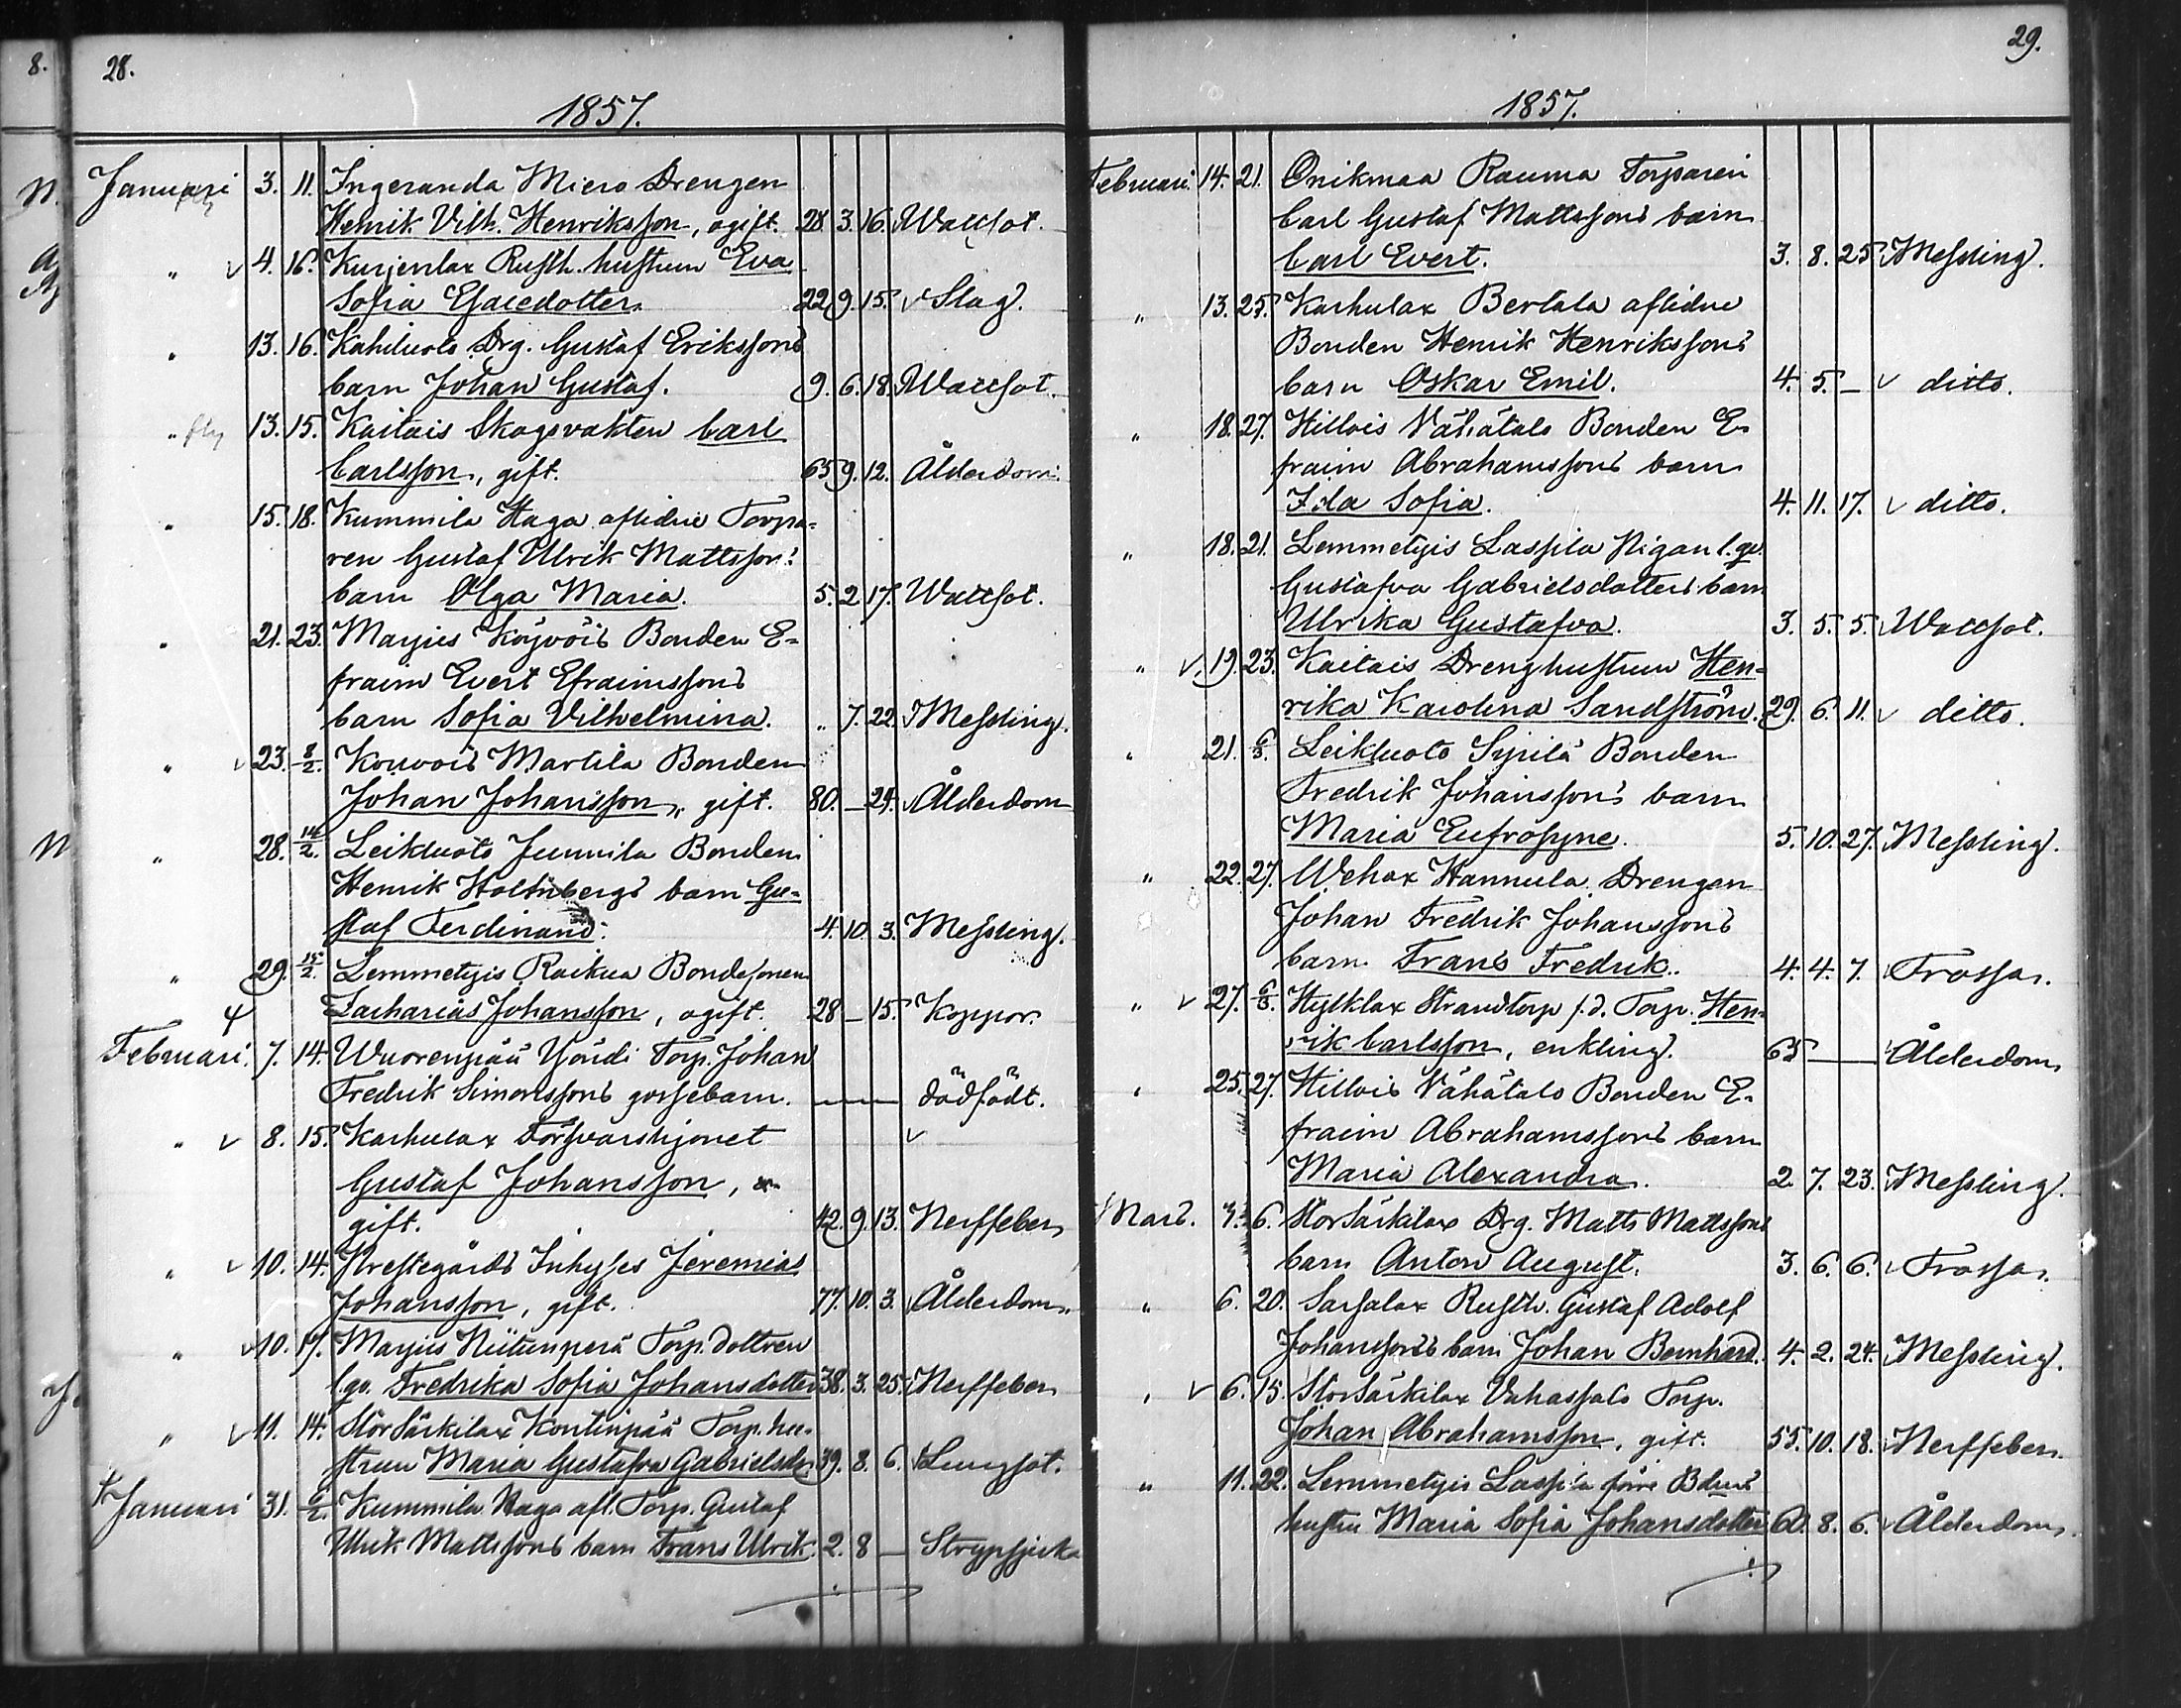 8.
28.
1857.
Januari 3. 11. Ingeranda Miero Drengen
Henrik Vilh. Henriksson, ogift. 28. 3. 16. Wattsot.
" v 4. 16. Kurjenlax Rusth. hustrun Eva
Sofia Esaiedotter. 22 9. 15. v Slag.
" 13. 16. Kahiluoto Drg. Gustaf Erikssons
barn Johan Gustaf. 9. 6. 18. Wattsot.
" fly 13. 15. Kaitais Skogsvakten Carl
Carlsson, gift. 65 9. 12. Ålderdom.
" 15. 18. Kummila Haga aflidne Torpa-
ren Gustaf Ulrik Mattsson's
barn Olga Maria. 5. 2 17. Wattsot.
" 21. 23. Marjus Köyvöis Bonden E-
fraim Evert Efraimssons
barn Sofia Vilhelmina. " 7. 22. v Messling.
" v 23. 8/2. Kouvois Martila Bonden
Johan Johansson, gift. 80. — 24. v Ålderdom
" 28. 14/2. Leikluoto Junnila Bonden
Henrik Holtnbergs barn Gu-
staf Ferdinand. 4. 10. 3. Messling.
" 29. 15/2. Lemmetyis Raikua Bondesonen
Zacharias Johansson, ogift. 28 — 15. Koppor.
Februari. 7. 14. Wuorenpää Yöudi Torp. Johan
Fredrik Simonssons gossebarn. — dödfödt.
" v 8. 15. Karhulax Försvarshjonet v
Gustaf Johansson, o-
gift. 42. 9. 13. Nerffeber
" v 10. 14. Prestegårds Inhyses Jeremias
Johansson, gift. 77. 10. 3. v Ålderdom.
" v 10. 17. Marjus Niitunperä Torp. dottren
lgo. Fredrika Sofia Johansdotter 38. 3. 25. Nerffeber
" v 11. 14. Stor Särkilax Kontinpää Torp. hu-
strun Maria Gustafva Gabrielsdr. 39. 8. 6. v Lungsot.
+ Januari 31. 6/2. Kummila Haga afl. Torp. Gustaf
Ulrik Mattssons barn Frans Ulrik. 2. 8 — Strypsjuka
29.
1857.
Februari. 14. 21. Onikmaa Rauma Torparen
Carl Gustaf Mattssons barn
Carl Evert. 3. 8. 25. Messling.
" 13. 25. Karhulax Bertala aflidne
Bonden Henrik Henrikssons
barn Oskar Emil. 4. 5. — v ditto.
" 18. 27. Hillois Vähätalo Bonden E-
fraim Abrahamssons barn
Ida Sofia. 4. 11. 17. v ditto.
" 18. 21. Lemmetyis Lassila Pigan l. go.
Gustafva Gabrielsdotters barn
Ulrika Gustafva. 3. 5. 5. Wattsot.
" v. 19. 23. Kaitais Drenghustrun Hen-
rika Karolina Sandström. 29. 6. 11. v ditto.
" 21. 6/3. Leikluoto Syrilä Bonden
Fredrik Johanssons barn
Maria Eufrosyne. 5. 10. 27. Messling.
" 22. 27. Wehax Hannula Drengen
Johan Fredrik Johanssons
barn Frans Fredrik. 4. 4. 7. Frossa.
" v 27. 6/3. Hylklax Strandtorp f. d. Torp. Hen-
rik Carlsson, enkling. 65 — Ålderdom
" 25. 27. Hillois Vähätalo Bonden E-
fraim Abrahamssons barn
Maria Alexandra. 2. 7. 23. Messling.
Mars. 3. 6. Stor Särkilax Drg. Matts Mattssons
barn Anton August. 3. 6. 6. Frossa.
" 6. 20. Sarsalax Rusth. Gustaf Adolf
Johanssons barn Johan Bernhard. 4. 2. 24. Messling.
" v 6. 15. Stor Särkilax Vahassalo Torp.
Johan Abrahamsson, gift. 55. 10. 18. Nerffeber.
" 11. 22. Lemmetyis Lassila förre Bdens
hustru Maria Sofia Johansdotter 60. 8. 6. v Ålderdom.